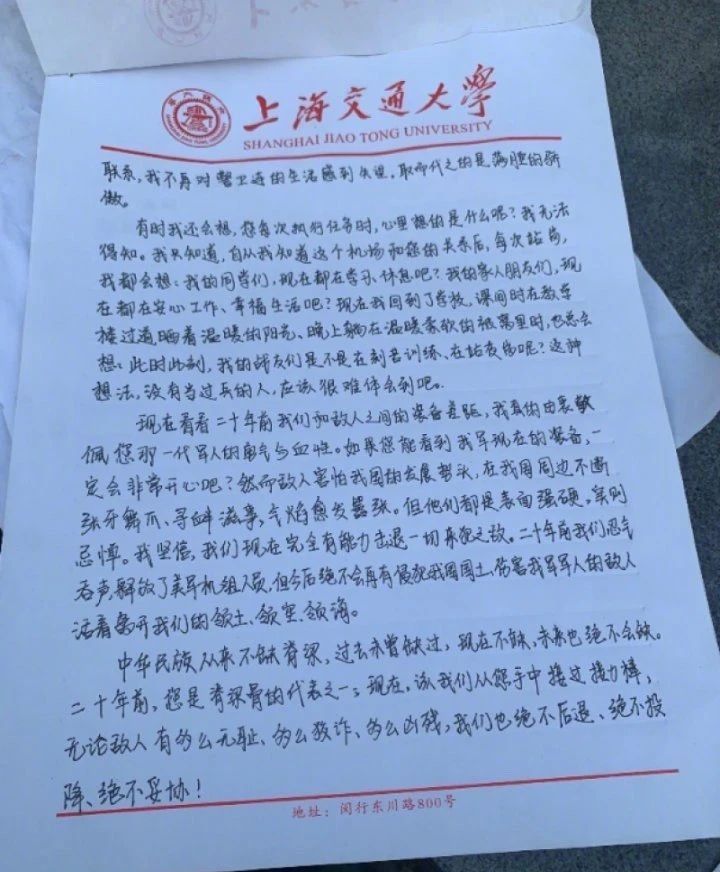 上海交通大学
SHANGHAI JIAO TONG UNIVERSITY
SHANGHAI JIAO TONG UNIVERSITY
联系,我不再对警卫连的生活感到失望,取而代之的是满腔的骄
傲。
有时我还会想,您每次执行任务时,心里想的是什么呢?我无法
得知。我只知道,自从我知道这个机场和您的关系后,每次站岗,
我都会想:我的同学们,现在都在学习、休息吧?我的家人朋友们,现
在都在安心工作、幸福生活吧?现在我回到了学校,课间时在教学
楼过道晒着温暖的阳光、晚上躺在温暖柔软的被窝里时,也总会
想:此时此刻,我的战友们是不是在刻苦训练、在站夜岗呢?这种
想法,没有当过兵的人,应该很难体会到吧。
现在看看二十年前我们和敌人之间的装备差距,我真的由衷敬
佩您那一代军人的勇气与血性。如果您能看到我军现在的装备,一
定会非常开心吧?然而敌人害怕我国的发展势头,在我国周边不断
张牙舞爪、寻衅滋事,气焰愈发嚣张。但他们都是表面强硬,实则
忌惮。我坚信,我们现在完全有能力击退一切来犯之敌。二十年前我们忍气
吞声,释放了美军机组人员,但今后绝不会再有侵犯我国国土、伤害我军军人的敌人
活着离开我们的领土、领空、领海。
中华民族从来不缺脊梁,过去未曾缺过,现在不缺,未来也绝不会缺。
二十年前,您是脊梁骨的代表之一;现在,该我们从您手中接过接力棒,
无论敌人有多么无耻、多么狡诈、多么凶残,我们也绝不后退、绝不投
降、绝不妥协!
地址:闵行东川路800号